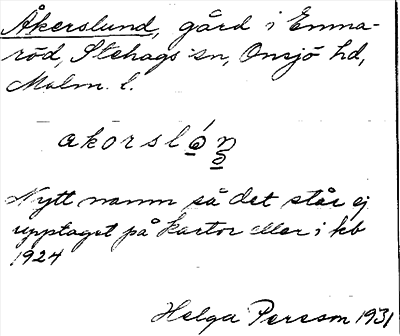 Åkerslund, gård i Emma-
röd, Stehags sn, Onsjö hd,
Malm. l.
akorslón
Nytt namn så det står ej
upptaget på kartor eller i kb
1924
Helga Persson 1931